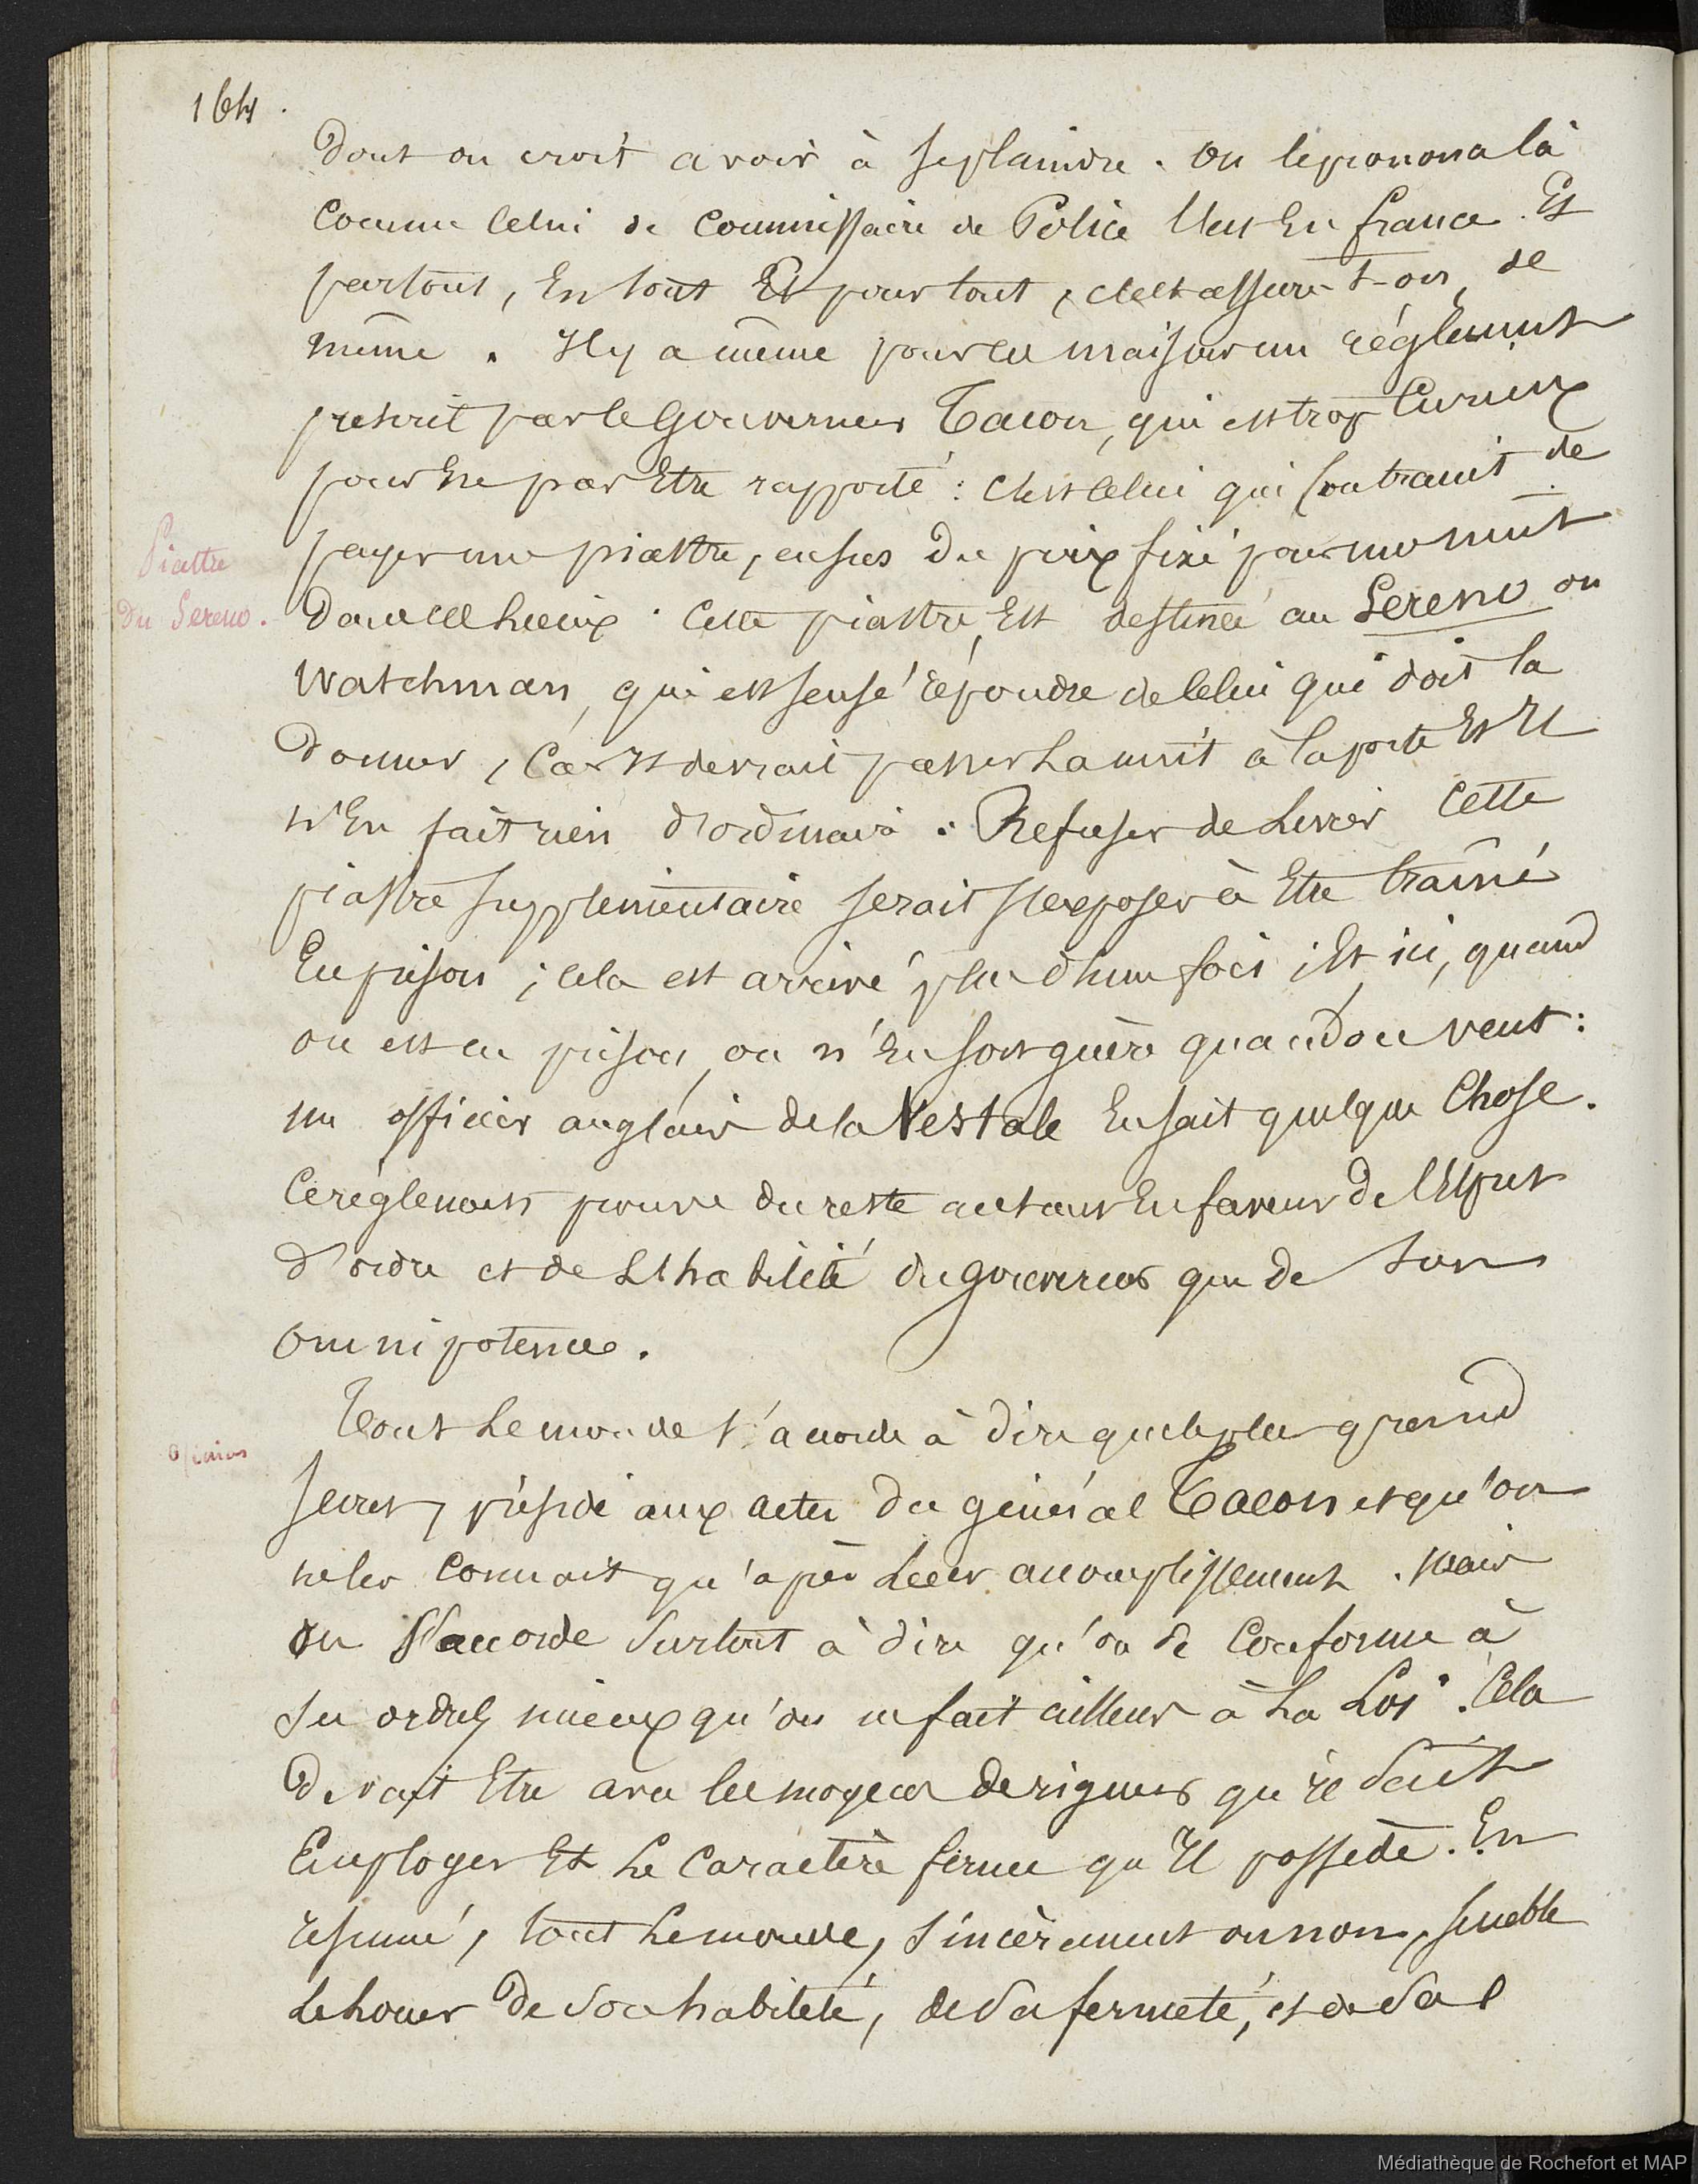 164.
dont on croit avoir à se plaindre. On le prononce là
comme celui de Commissaire de Police l'est en france. Et
partout, En tout Et pour tout, c'est assure-t-on, de
même. Il y a même pour les maisons un réglement
prescrit par le Gouverneur Tacon, qui est trop curieux
pour Ne pas Etre rapporté : c'est celui qui contraint de
payer une piastre, ensus du prix fixé pour une nuit
Piastre
du Sereno.
dans ces lieux. Cette piastre Est destinée au Sereno ou
Watchman, qui est sensé répondre de celui qui doit la
donner, Car Il devrait passer La nuit à la porte Et Il
n'En fait rien d'ordinaire. Refuser de Livrer cette
piastre supplémentaire serait s'exposer à Etre traîné
En prison ; cela est arrivé plus d'une fois ; Et ici, quand
on est en prison, on n'En sort guère quand on veut :
un officier anglais de la Vestale En sait quelque Chose.
Ce réglement prouve du reste autant En faveur de l'Esprit
d'ordre et de L'habileté du gouverneur que de son
omnipotence.
Opinion
Tout Le monde s'accorde à dire que le plus grand
secret, préside aux actes du général Tacon et qu'on
ne les connait qu'après Leur accomplissement. Mais
on s'accorde surtout à dire qu'on se conforme à
ses ordres mieux qu'on ne fait ailleurs à La Loi. Cela
devait Etre avec les moyens de rigueur qu'il sait
Employer Et Le Caractère ferme qu'Il possède. En
résumé, tout Le monde, sincèrement ou non, semble
Le houer de son habileté, de sa fermeté, et de sa l
Médiathèque de Rochefort et MAP